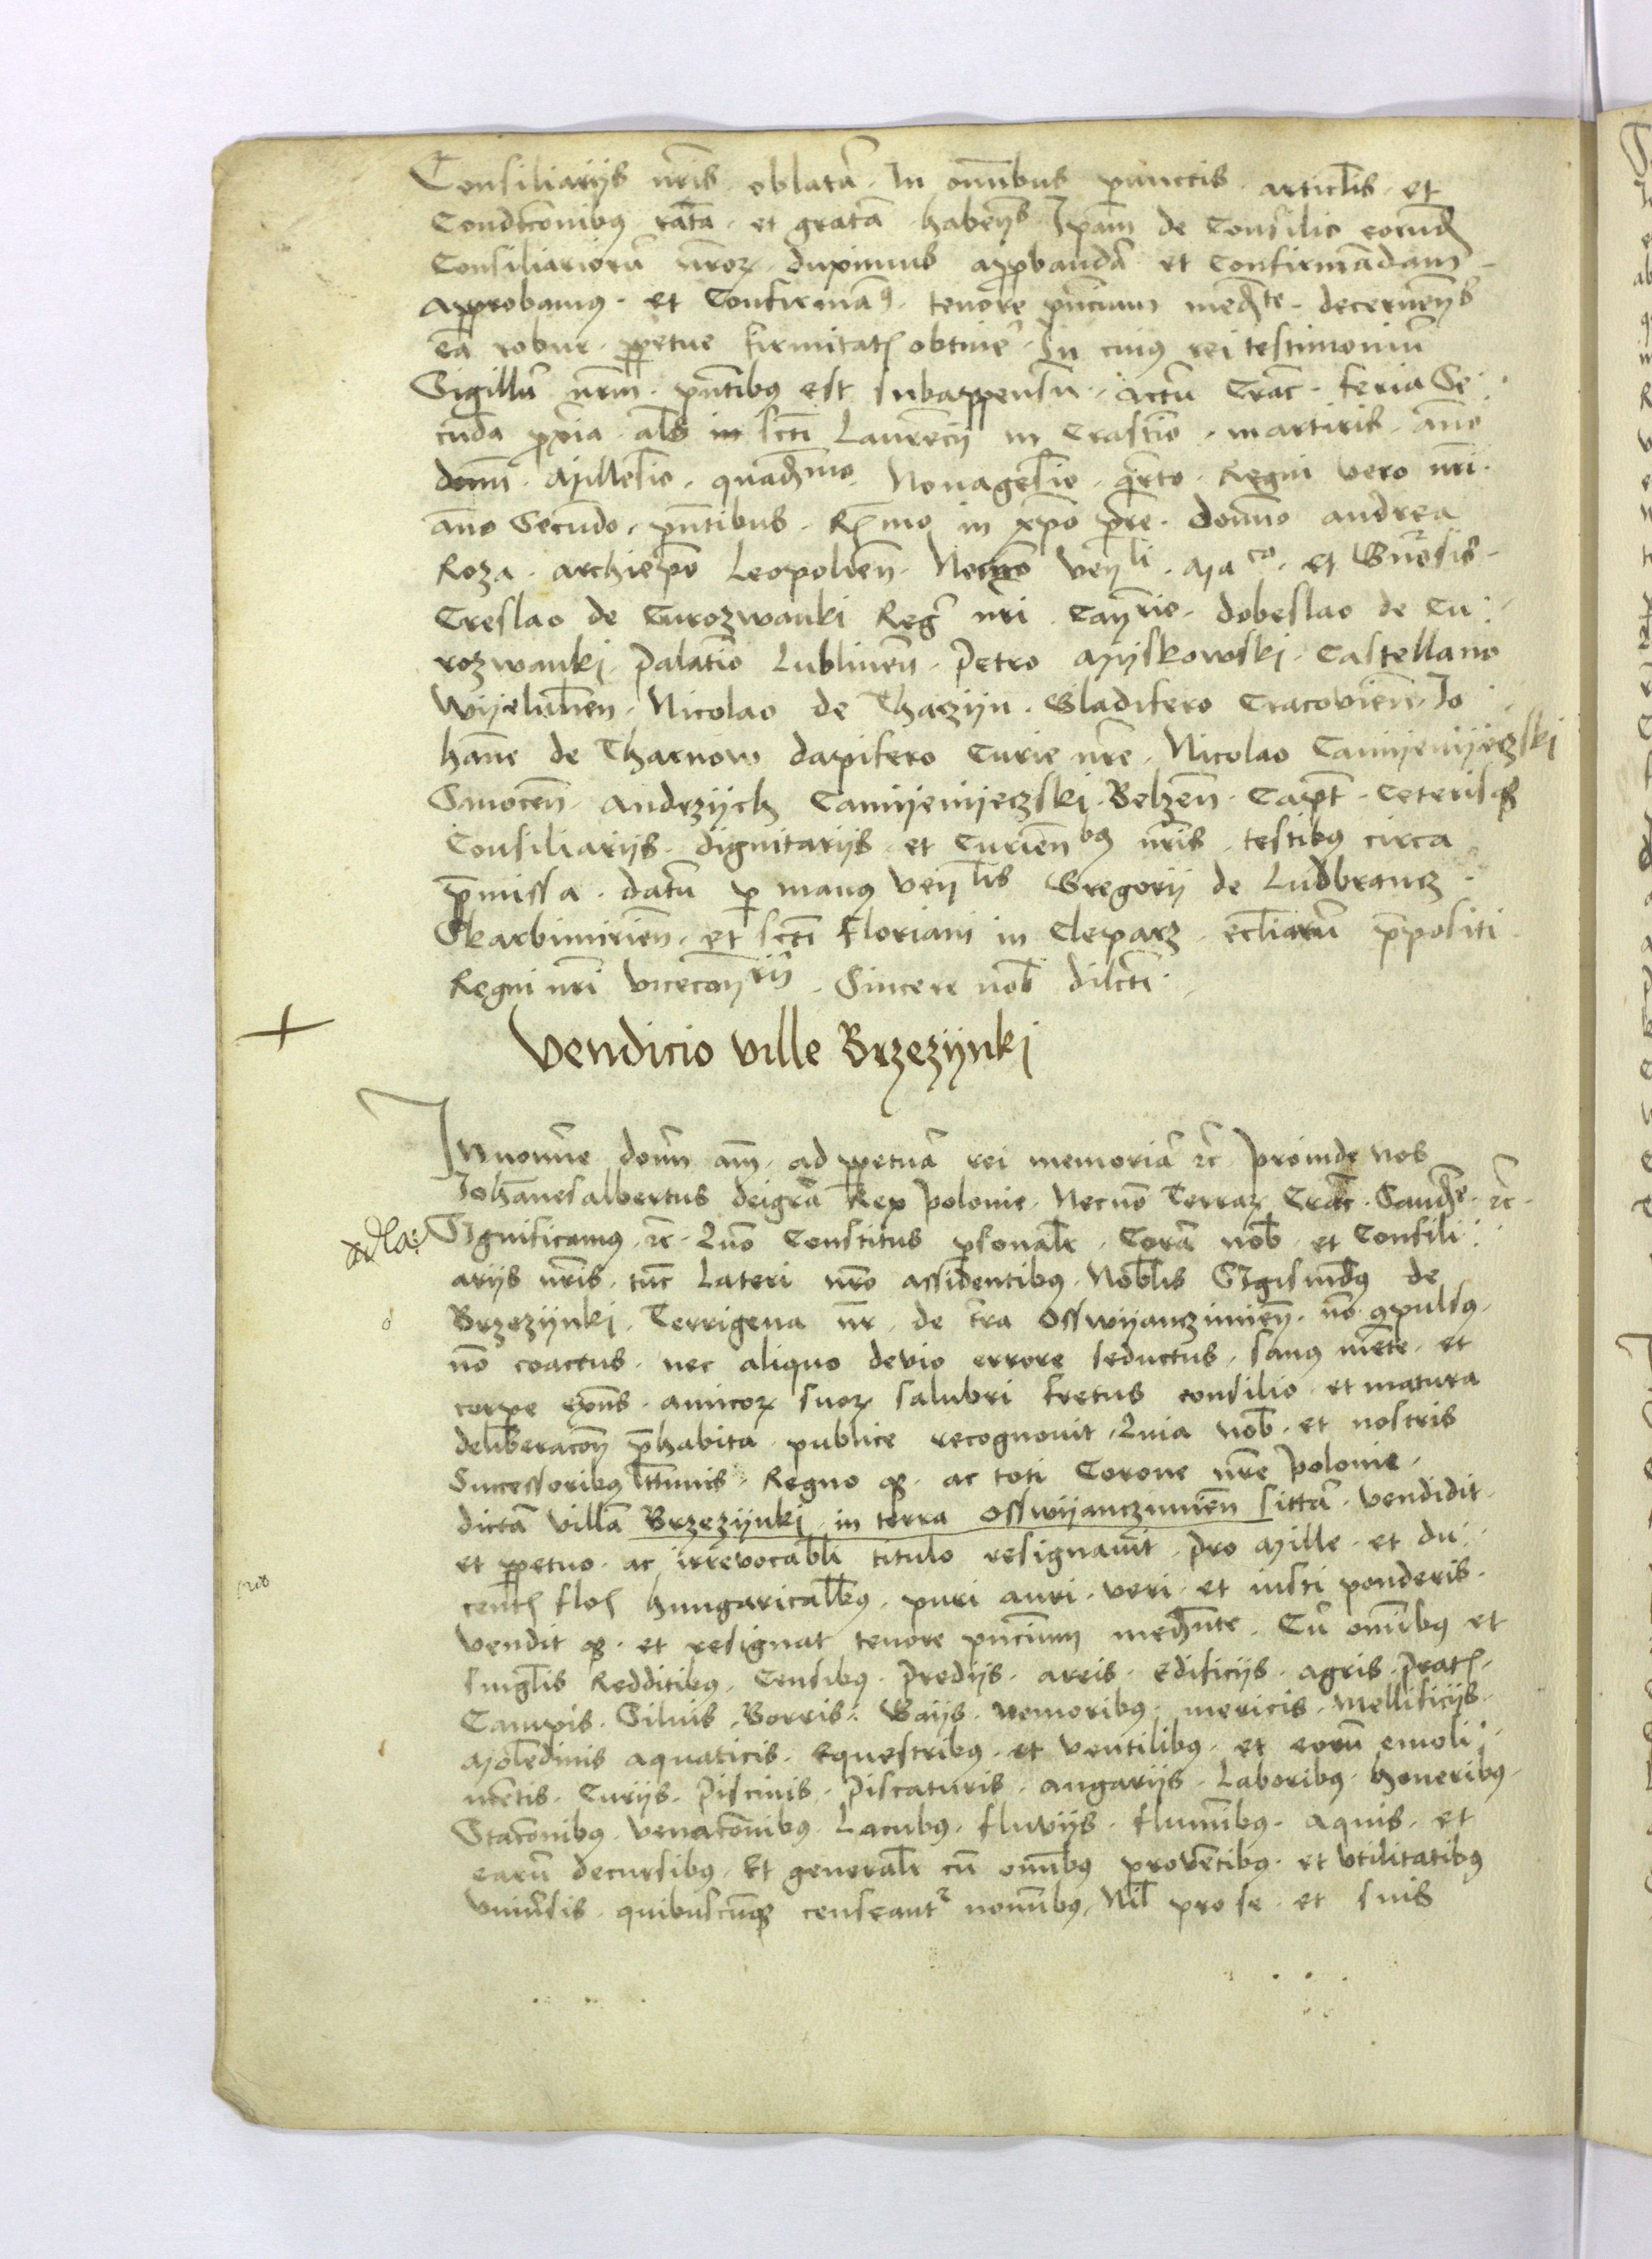 Consiliarijs nr̄is oblatā. In om̄ibus punctis articl̄is et
Condic̄onibus ratā et gratā habeñs Ip̄am de Consilio eorund
Consiliariorū nr̄oꝝ duximus app̄bandā et Confirmādam
approbamus et Confirmāꝰ tenore pn̄cium med̄te decerneñs
eā robur ꝑpetue firmitatꝭ obtinē̄. In cuius rei testimoniū
Sigillū nr̄m pn̄tibus est subappensū. Actū Crac̄ feria Se
cūda ꝓxīa al̄s in sct̄i Laurecij in Crastīo martiris. anō
domī Millesīo quad̄mo Nonagesīo qrto Regni vero nr̄i
anō Secūdo, pn̄tibus Rmo in xp̄o pr̄e domīo andrea
Roza archiep̄o Leopolien̄ Necnō Ven̄li Maco et Gn̄rosis
Creslao de Curozwanki Reḡ nr̄i Can̄rio. dobeslao de Cu
rozwanki, Palatīo Lublinen̄ Petro Myskowski Castellano
Wijelunen̄ Nicolao de Tharzijn Gladifero Cracovien̄ Jo
han̄e de Tharnow dapifero Curie nr̄e Nicolao Camijenijeczski
Smocen̄ andrzijch Camijenijeczski Belzen̄ Capt̄ Ceterisqꝫ
Consiliarijs dignitarijs et Curien̄bꝰ nr̄is testibꝰ circa
p̄missa. datū ꝑ manus Ven̄lis Gregorij de Ludbrancz
Skarbimirien̄ et sct̄i Floriani in Cleparz eccl̄iarū p̄positi
Regni nr̄i vicecan̄rij Sincere nob̄ dilct̄i
Vendicio ville Brzezijnki
In noīne domī am̄ ad ꝑpetuā rei memoriā ꝛc̄ proinde nos
Joh̄annesalbertus deigrā Rex polonie Necnō Terraꝝ Crac̄ Sand̄o ꝛc̄
Significamus ꝛc̄ Quō Constitus ꝑsonalr̄ Corā nob̄ et Consili
arijs nr̄is tūc Lateri nr̄o assidentibus Nobl̄is Sigismd̄us de
Brzezijnki Terrigena nr̄ de tr̄a Osswijanczimien̄ nō ꝯpulsꝰ
nō coactus nec aliquo devio errore seductus, sanꝰ mēte et
corꝑe exn̄s amicoꝝ suoꝝ salubri fretus consilio et matura
delib̄eracōn̄ p̄habita publice recognouit Quia nob̄ et nostris
Successoribus l̄ttimis Regno qꝫ ac toti Corone nr̄e Polonie
dictā villā Brzezijnki in terra Osswijanczimien̄ sittā vendidit
et ꝑpetuo ac irrevocabl̄i titulo resignavit pro Mille et du
centꝭ floꝭ hungaricalb̄us puri auri veri et iusti ponderis
Vendit qꝫ et resignat tenore pn̄cium med̄nte Cū om̄ibus et
singl̄is Redditibus, Censibus Predijs areis Edificijs agris Pratꝭ
Campis Siluis Borris Gaijs nemoribus mericis Mellificijs
Molēdinis aquaticis Equestribus et Ventilibus et eorū emoli
mētis Curijs Piscinis Piscaturis angarijs Laboribus honeribus
Stacōnibus venacōnibus Lacubus fluvijs flumībus aquis et
earū decursibus Et generalr̄ cū om̄ibus proventibus et Vtilitatibus
Vniūsis quibuscūqꝫ censeantr nom̄ibus, Nil pro se et suis